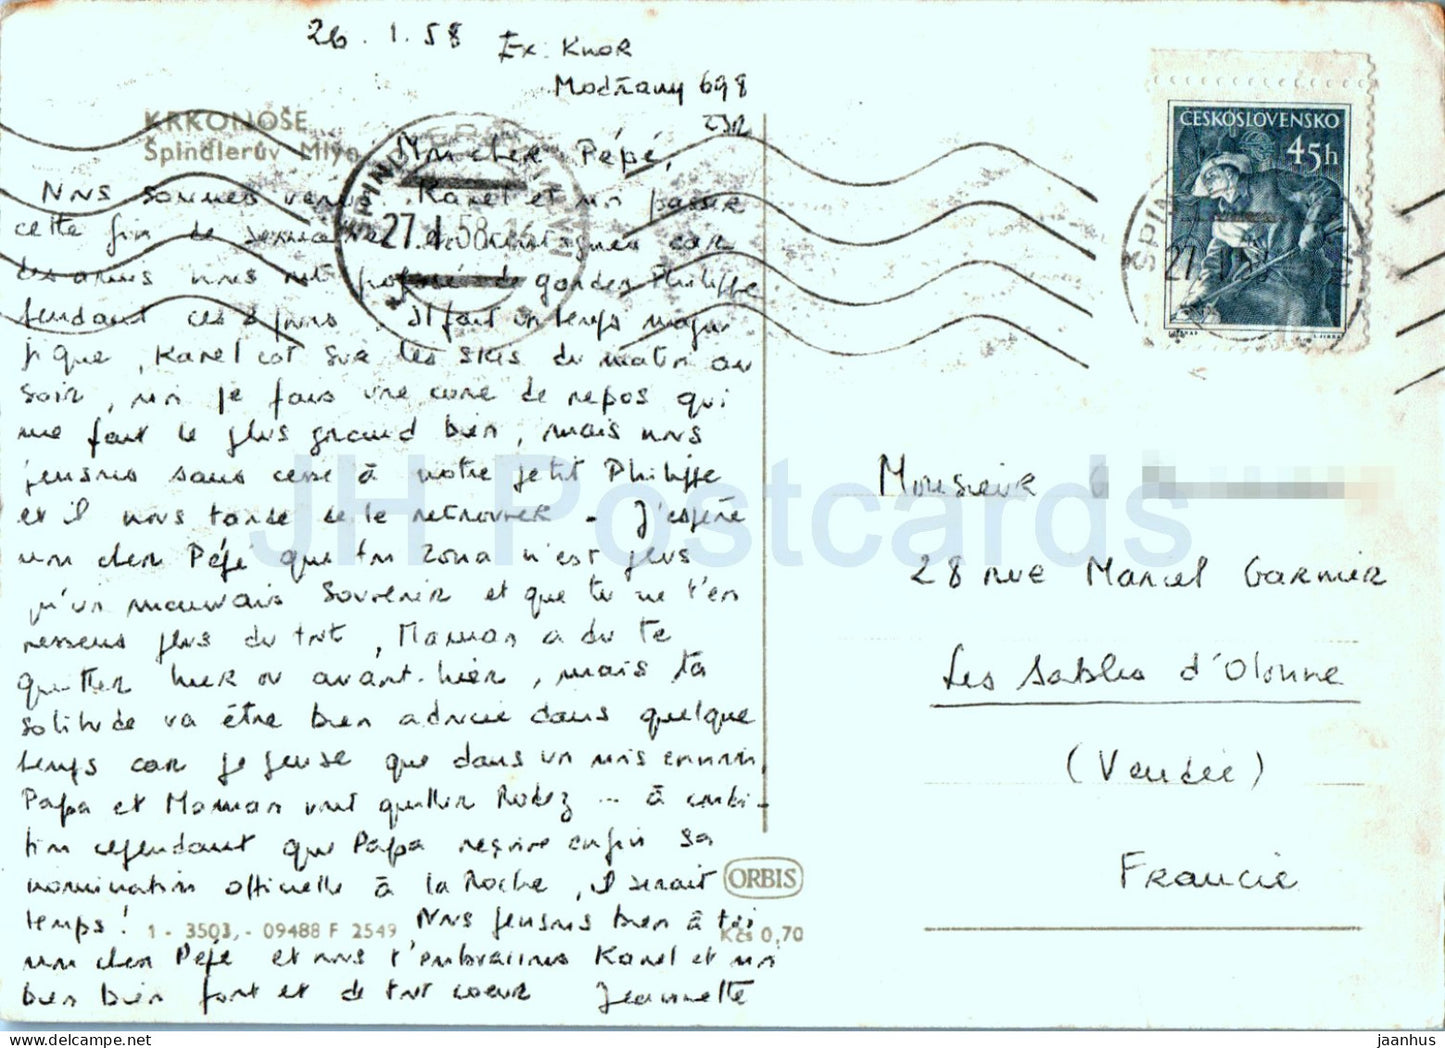 26.1.58 Ex: Knor
Modřany 698
ČSR
KRKONOŠE
Špindlerův Mlýn
Mon cher Pépé,
Nous sommes venus, Karel et moi passer
cette fin de semaine en montagnes car
des amis nous ont proposé de garder Philippe
pendant ces 2 jours. Il fait un temps magni-
fique, Karel est sur les skis du matin au
soir, moi je fais une cure de repos qui
me fait le plus grand bien, mais nous
pensons sans cesse à notre petit Philippe
et il nous tarde de le retrouver. J'espère
mon cher Pépé que ton zona n'est plus
qu'un mauvais souvenir et que tu ne t'en
ressens plus du tout, Maman a du te
quitter hier ou avant-hier, mais ta
solitude va être bien adoucie dans quelque
temps car je pense que dans un mois environ,
Papa et Maman vont quitter Rodez - à condi-
tion cependant que Papa reçoive enfin sa
nomination officielle à la Roche, il serait
temps! Nous pensons bien à toi
mon cher Pépé et nous t'embrassons Karel et moi
bien bien fort et de tout coeur Jeannette
1 - 3503,- 09488 F 2549
ORBIS
Kčs 0,70
ČESKOSLOVENSKO
45h
27.1.58
Monsieur
28 rue Marcel Garnier
Les Sables d'Olonne
(Vendée)
France
JH Postcards
delcampe.net
jaanhus